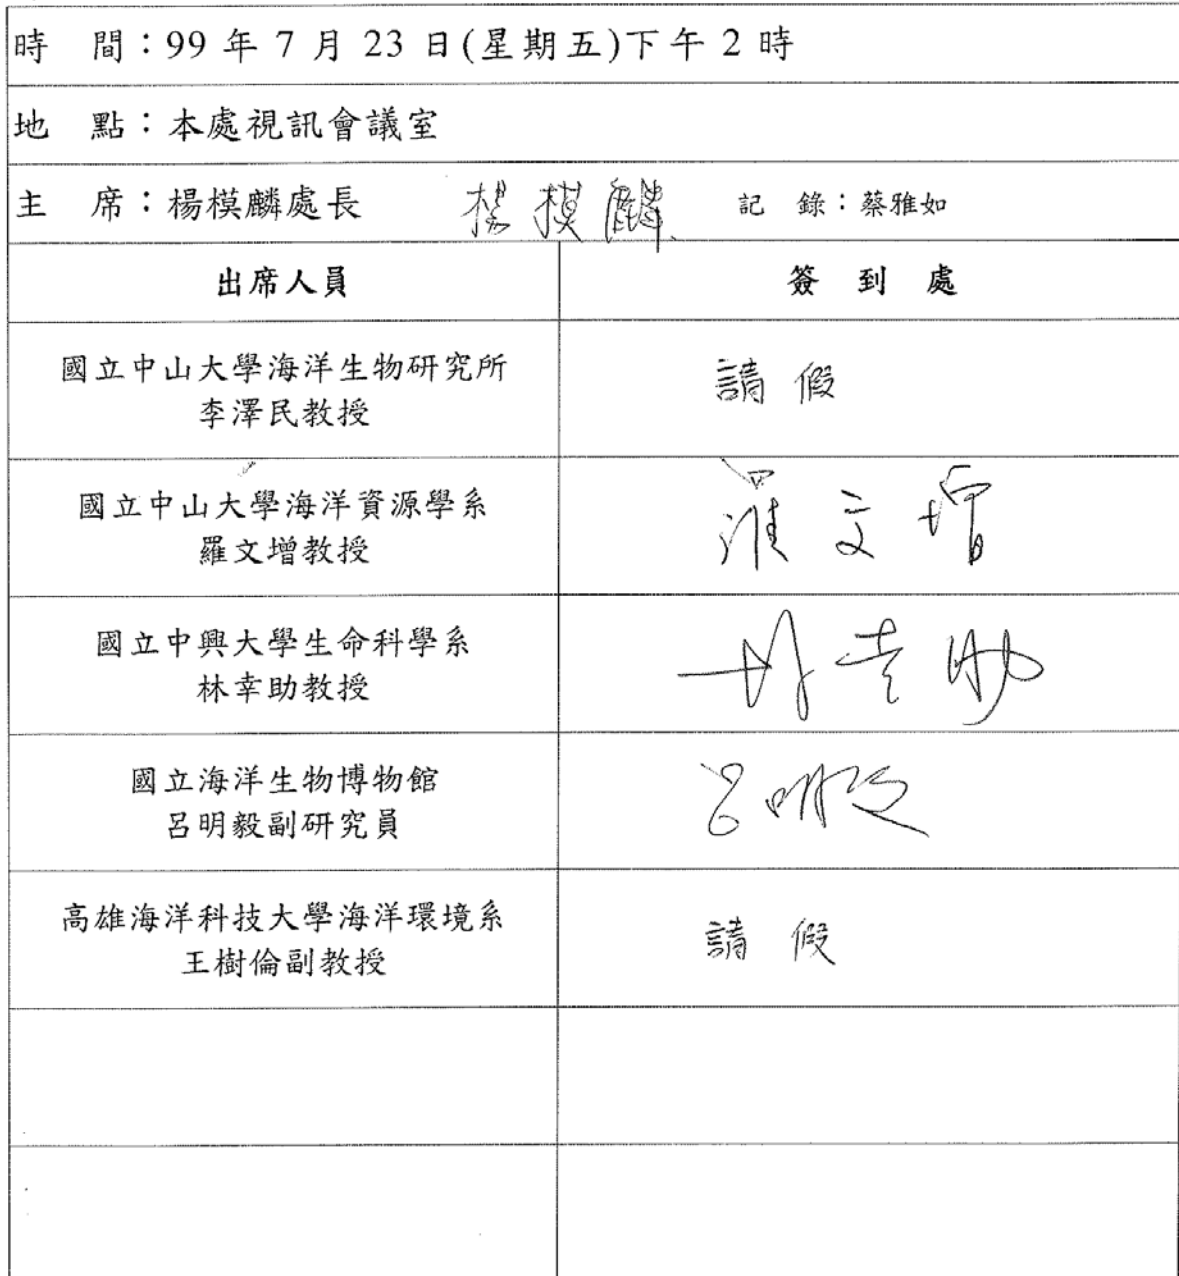 時　間：99 年 7 月 23 日(星期五)下午 2 時
地　點：本處視訊會議室
主　席：楊模麟處長　楊模麟　記　錄：蔡雅如
出席人員　簽　到　處
國立中山大學海洋生物研究所
李澤民教授
請假
國立中山大學海洋資源學系
羅文增教授
羅文增
國立中興大學生命科學系
林幸助教授
林幸助
國立海洋生物博物館
呂明毅副研究員
呂明毅
高雄海洋科技大學海洋環境系
王樹倫副教授
請假